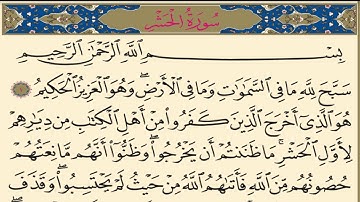 سُورَةُ الْحَشْرِ
بِسْمِ اللَّهِ الرَّحْمَٰنِ الرَّحِيمِ
سَبَّحَ لِلَّهِ مَا فِي السَّمَٰوَٰتِ وَمَا فِي الْأَرْضِ ۖ وَهُوَ الْعَزِيزُ الْحَكِيمُ ١
هُوَ الَّذِي أَخْرَجَ الَّذِينَ كَفَرُوا مِنْ أَهْلِ الْكِتَٰبِ مِن دِيَٰرِهِمْ
لِأَوَّلِ الْحَشْرِ ۚ مَا ظَنَنتُمْ أَن يَخْرُجُوا ۖ وَظَنُّوا أَنَّهُم مَّانِعَتُهُمْ
حُصُونُهُم مِّنَ اللَّهِ فَأَتَىٰهُمُ اللَّهُ مِنْ حَيْثُ لَمْ يَحْتَسِبُوا ۖ وَقَذَفَ